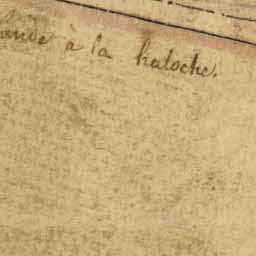 lande à la haloche.